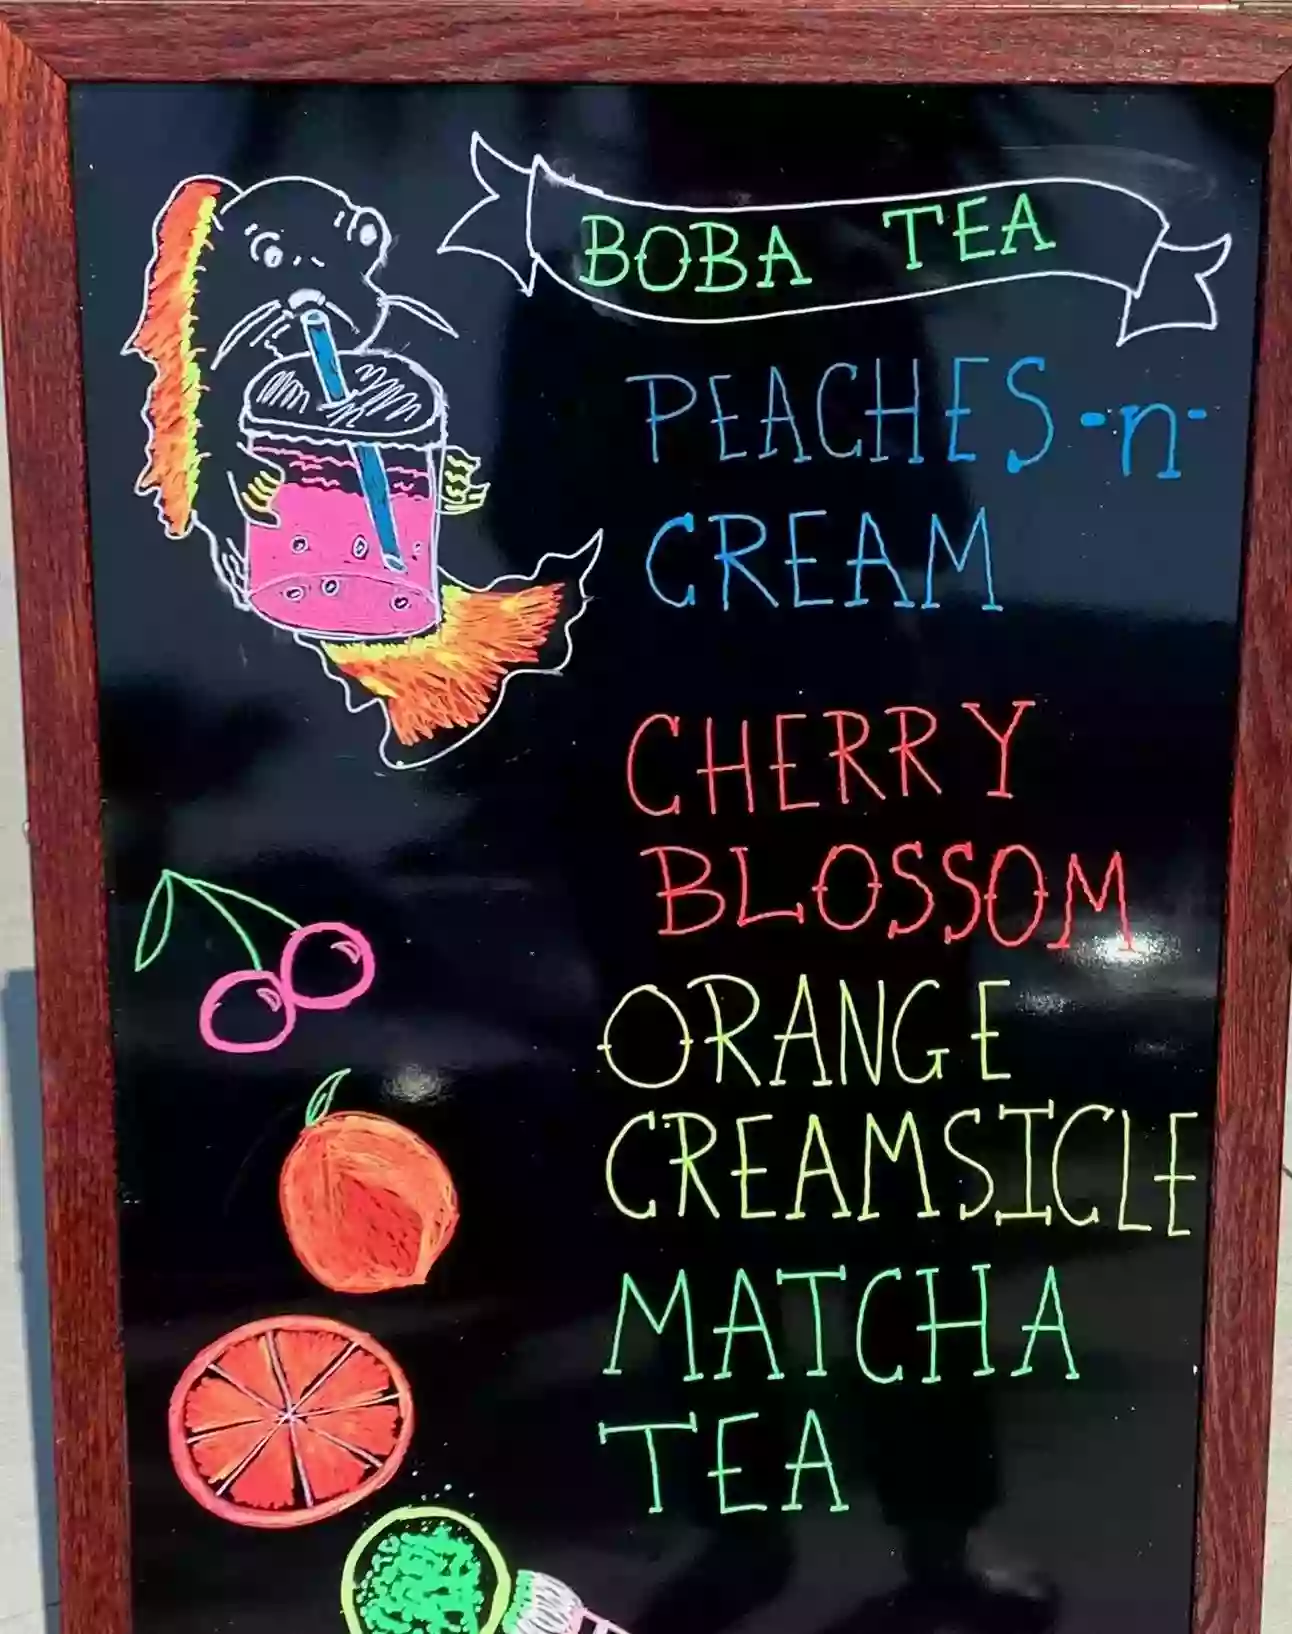 BOBA TEA
PEACHES-n-
CREAM
CHERRY
BLOSSOM
ORANGE
CREAMSICLE
MATCHA
TEA